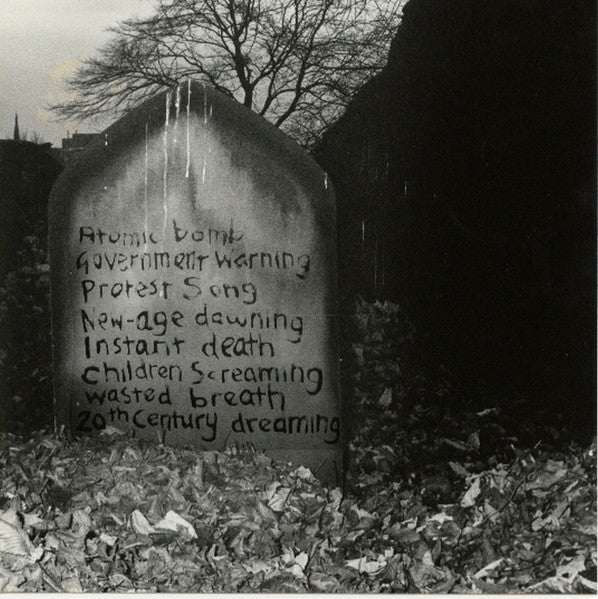 Atomic bomb
Government Warning
Protest Song
New-age dawning
Instant death
Children Screaming
wasted breath
20th Century dreaming